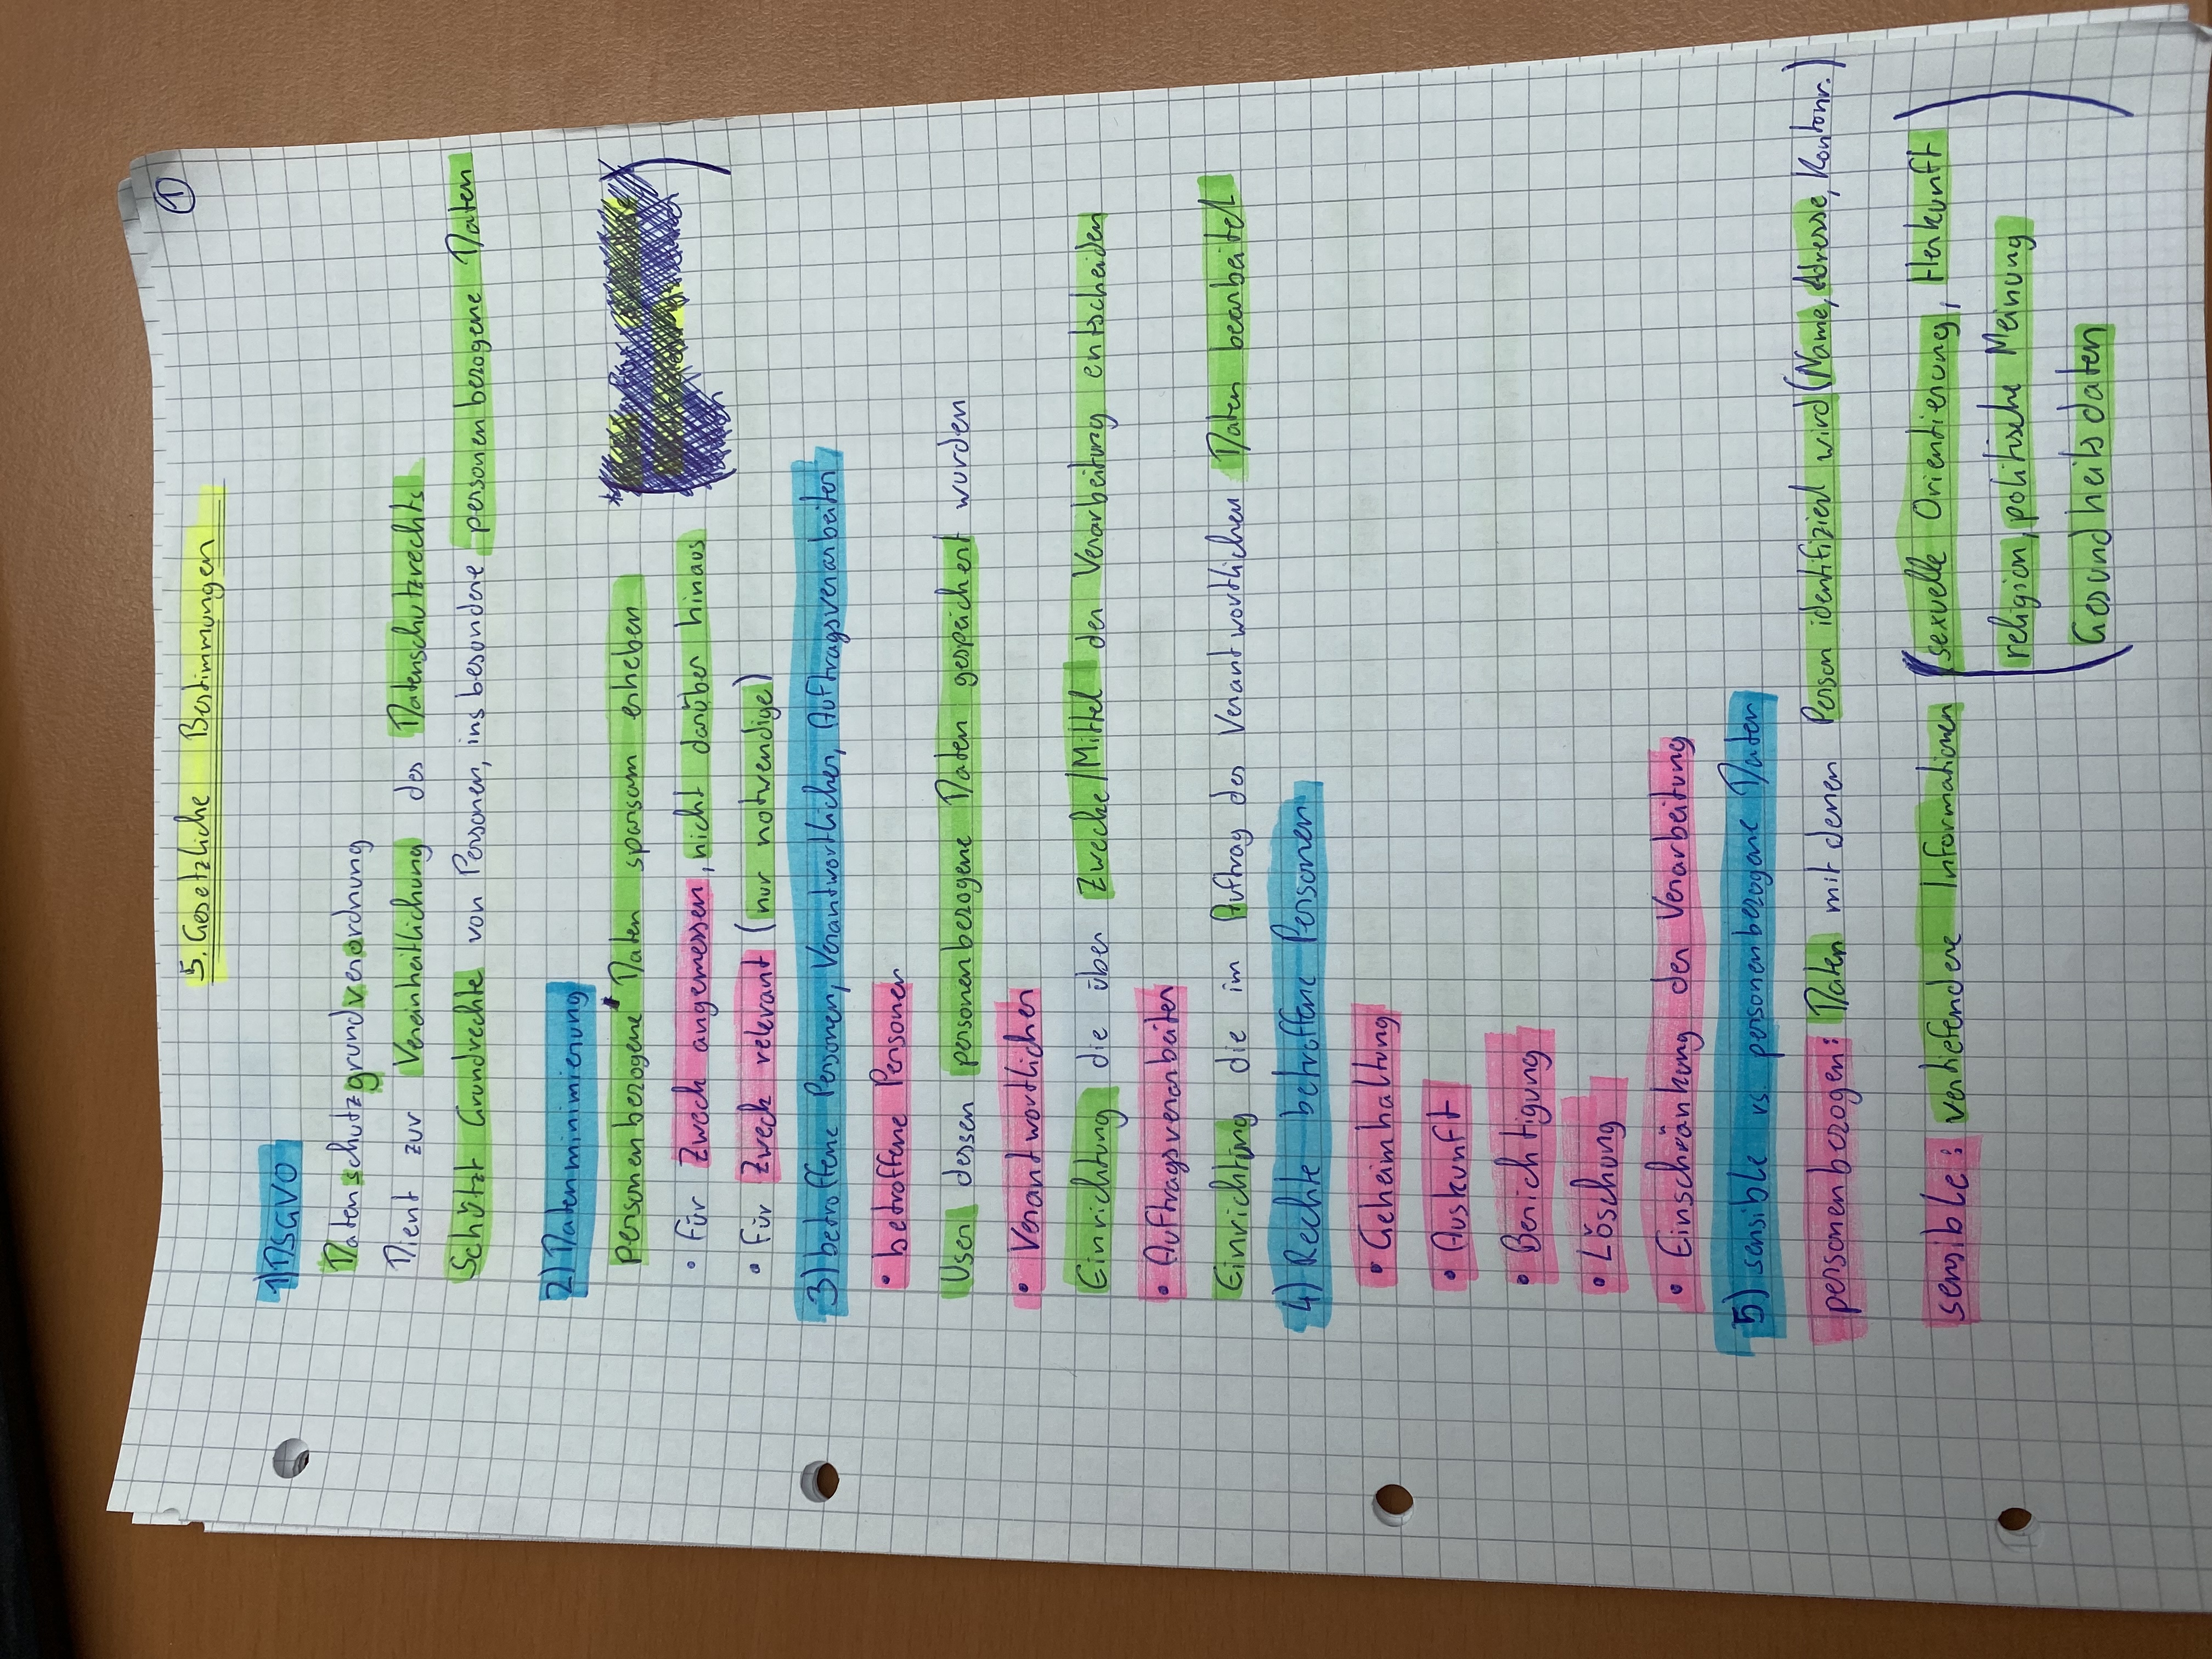 ①
5. Gesetzliche Bestimmungen
1) DSGVO
Datenschutzgrundverordnung
Dient zur Vereinheitlichung des Datenschutzrechts
Schützt Grundrechte von Personen, insbesondere personenbezogene Daten
2) Datenminimierung
personenbezogene Daten sparsam erheben
• für Zweck angemessen, nicht darüber hinaus
• für Zweck relevant (nur notwendige)
3) betroffene Personen, Verantwortlicher, Auftragsverarbeiter
• betroffene Personen
User dessen personenbezogene Daten gespeichert wurden
• Verantwortlicher
Einrichtung die über Zwecke/Mittel der Verarbeitung entscheiden
• Auftragsverarbeiter
Einrichtung die im Auftrag des Verantwortlichen Daten bearbeitet
4) Rechte betroffene Personen
• Geheimhaltung
• Auskunft
• Berichtigung
• Löschung
• Einschränkung der Verarbeitung
5) sensible vs. personenbezogene Daten
personenbezogen: Daten mit denen Person identifiziert wird (Name, Adresse, Kontonr.)
sensible: vertiefendere Informationen (sexuelle Orientierung, Herkunft
religion, politische Meinung
Gesundheitsdaten)